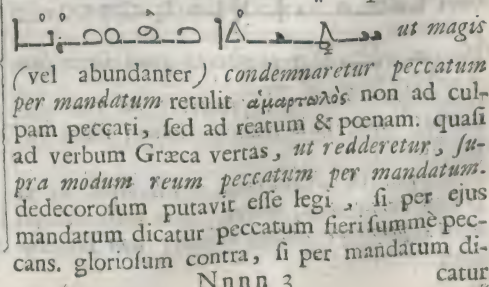 ut magis
(vel abundanter) condemnaretur peccatum
per mandatum retulit ἁμαρτωλὸς non ad cul-
pam peccati, ſed ad reatum & pœnam: quaſi
ad verbum Græca vertas, ut redderetur, ſu-
pra modum reum peccatum per mandatum.
dedecoroſum putavit eſſe legi, ſi per ejus
mandatum dicatur peccatum fieri ſummè pec-
cans. glorioſum contra, ſi per mandatum di-
Nnnn 3 catur